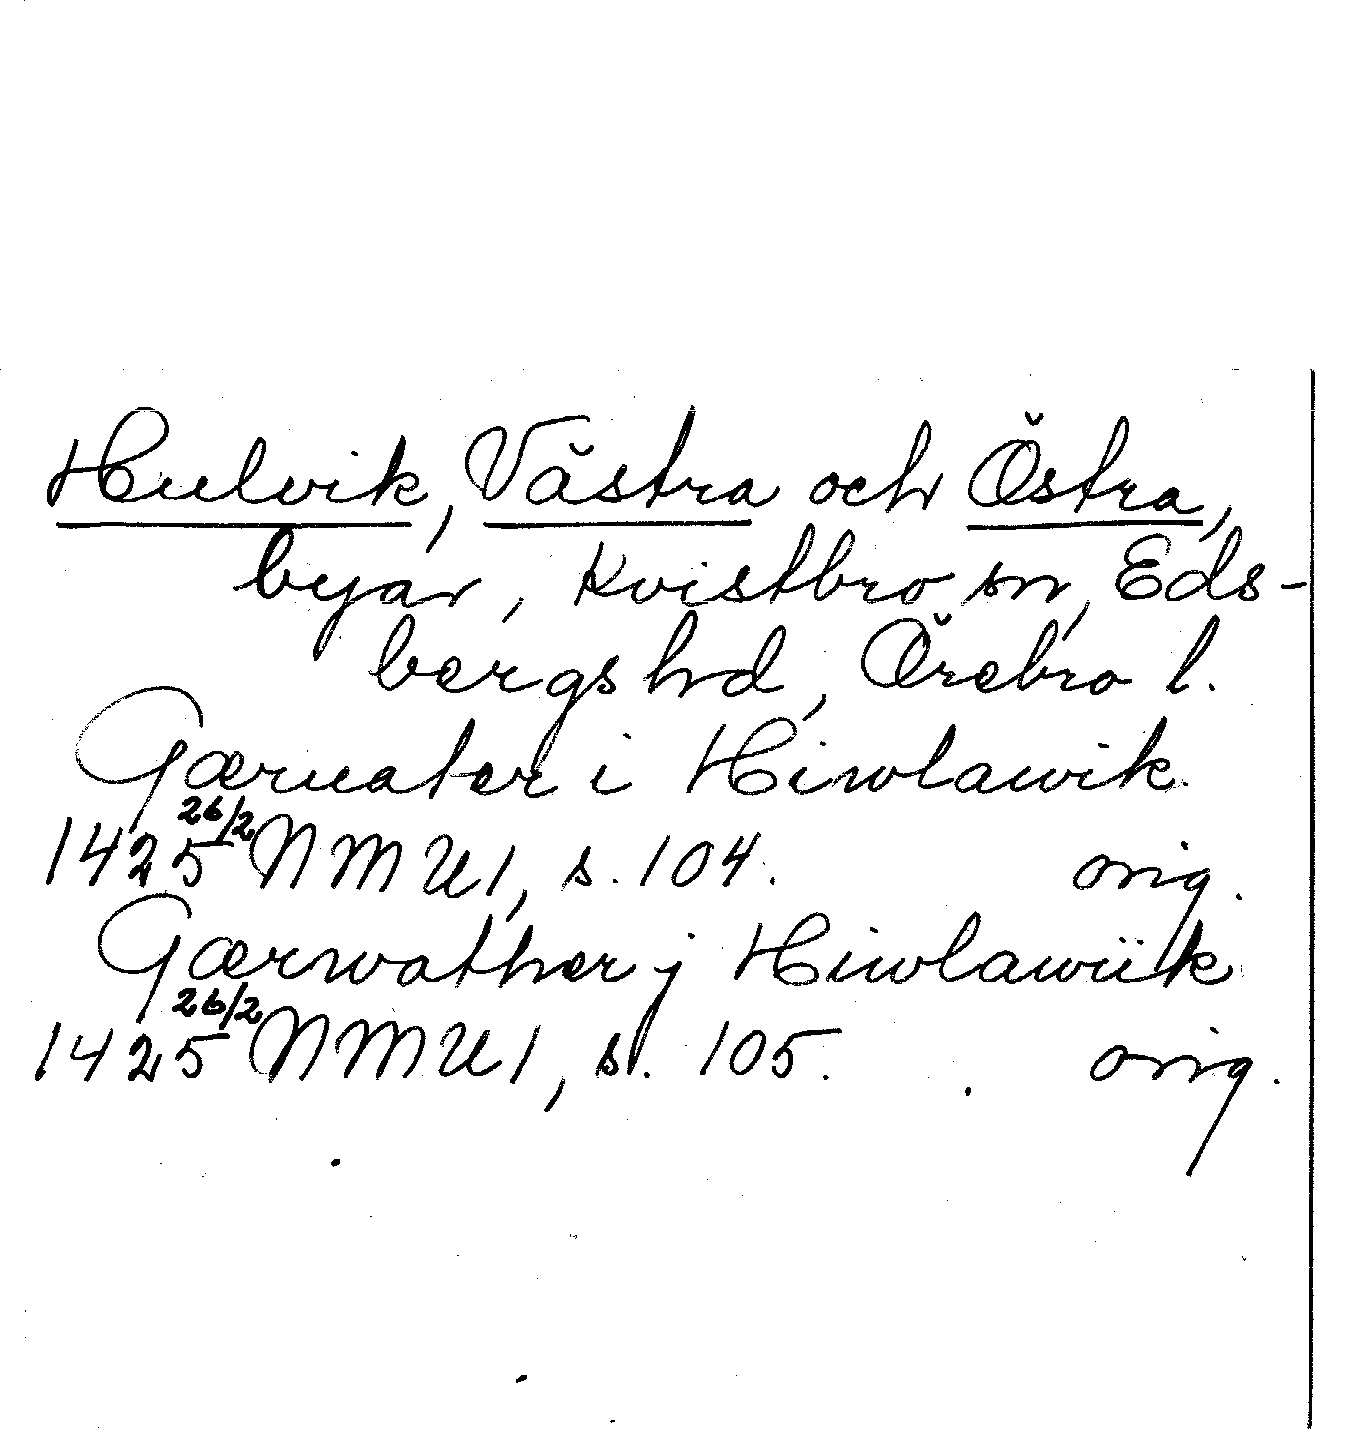 Hulvik, Västra och Östra,
byar, Kvistbro sn, Eds-
bergs hd, Örebro l.
Gæruater i Hiwlawik
1425 26/2 NMU1, s. 104. orig.
Gærwather j Hiwlawiik
1425 26/2 NMU1, s. 105. orig.